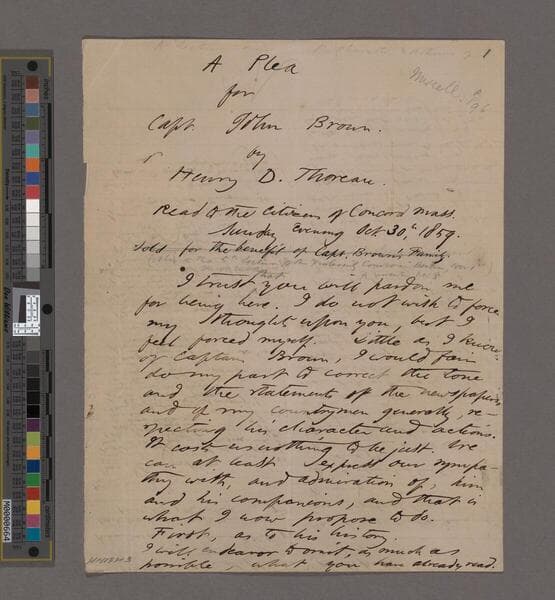 1
A Plea
for
Capt. John Brown.
by
Henry D. Thoreau.
Miscell. p 96
Read to the citizens of Concord Mass.
Sunday Evening Oct 30th 1859.
Sold for the benefit of Capt. Brown's Family.
I trust you will pardon me
for being here. I do not wish to force
my thoughts upon you, but I
feel forced myself. Little as I know
of Captain Brown, I would fain
do my part to correct the tone
and the statements of the newspapers,
and of my countrymen generally, re-
specting his character and actions.
It costs us nothing to be just. We
can at least express our sympa-
thy with, and admiration of, him
and his companions, and that is
what I now propose to do.
First, as to his history.
I will endeavor to omit, as much as
possible, what you have already read.
inches
centimeters
Don Williams
M0000664